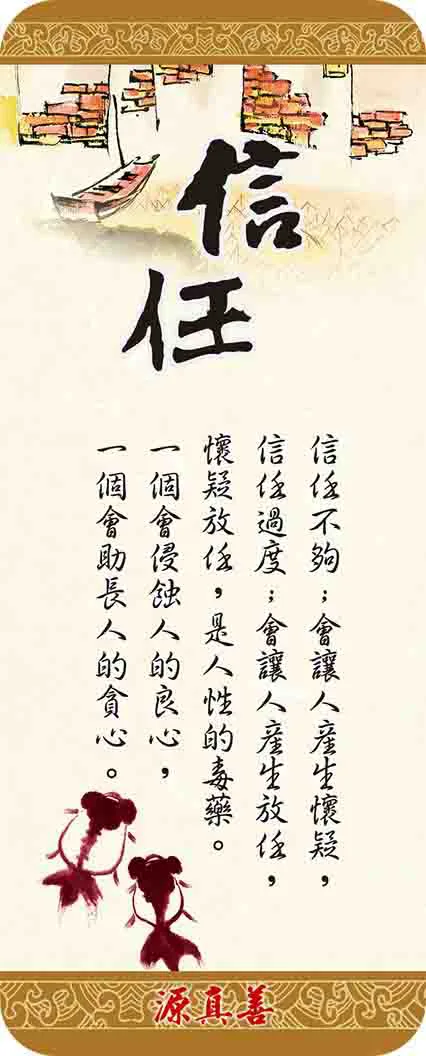 信任
信任不夠；會讓人產生懷疑，
信任過度；會讓人產生放任，
懷疑放任，是人性的毒藥。
一個會侵蝕人的良心，
一個會助長人的貪心。
源真善